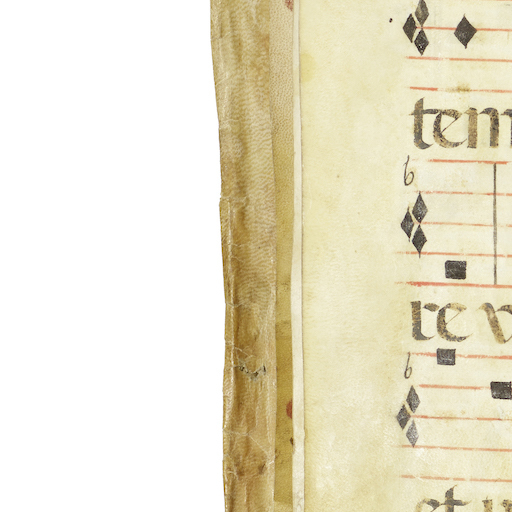 tem
re v
et